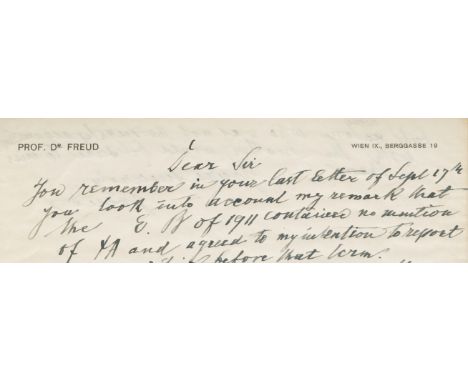 PROF. DR. FREUD
WIEN IX., BERGGASSE 19
Dear Sir
You remember in your last letter of Sept 17th
you took into account my remark that
the E. B of 1911 contained no mention
of ΨA and agreed to my intention to report
before that term.